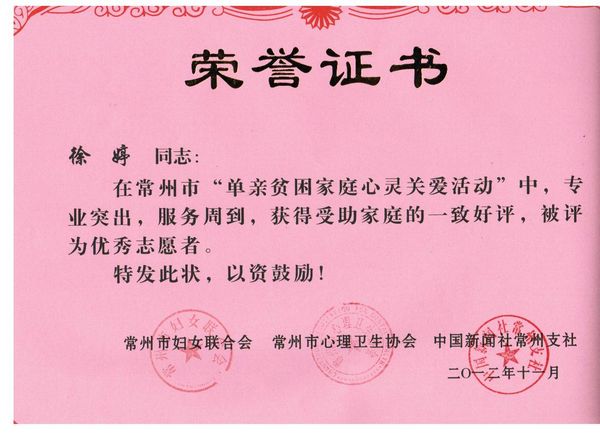 荣誉证书
徐婷 同志：
在常州市“单亲贫困家庭心灵关爱活动”中，专
业突出，服务周到，获得受助家庭的一致好评，被评
为优秀志愿者。
特发此状，以资鼓励！
常州市妇女联合会 常州市心理卫生协会 中国新闻社常州支社
二〇一二年十一月